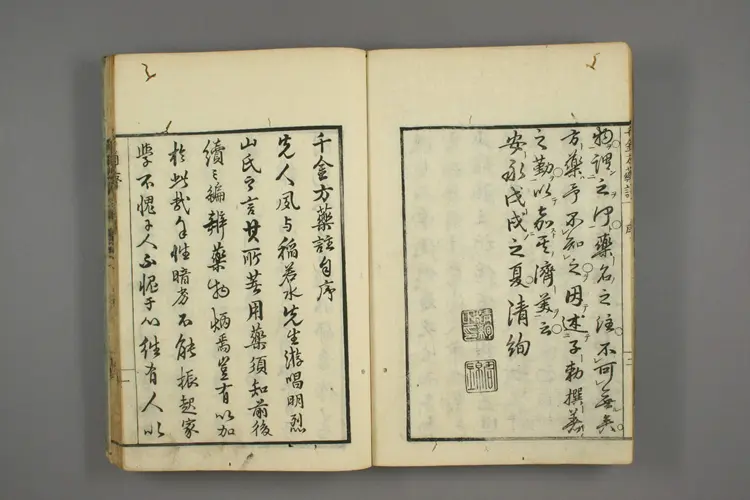 物理之ync藥名之注不可無矣
方藥予不知之因述子勅撰著
之勤以嘉其濟美云
安永戊戌之夏清絢
千金方藥註自序
先人夙与稲若水先生游唱明烈
山氏之言其所著用藥須知前後
續三編辨藥物炳焉豈有以加
於此哉乍性暗劣不能振起家
學不愧于人不愧于心雖有人以